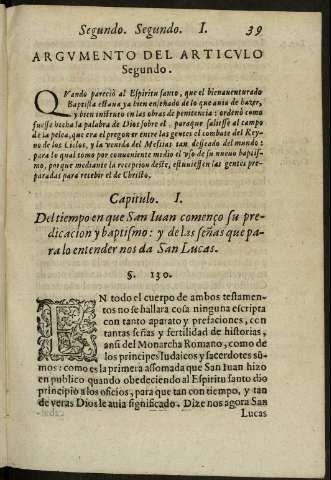 Segundo. Segundo. I. 39
ARGVMENTO DEL ARTICVLO
Segundo.
QVando pareciò al Espiritu santo, que el bienauenturado
Baptista estaua ya bien enseñado de lo que auia de hazer,
y bien instruto en las obras de penitencia: ordenò como
fuesse hecha la palabra de Dios sobre el, paraque saliesse al campo
de la pelea, que era el pregonar entre las gentes el combate del Rey-
no de los Cielos, y la venida del Messias tan desseado del mundo:
para lo qual tomo por conueniente medio el vso de su nueuo baptis-
mo, porque mediante la recepcion deste, estuuiessen las gentes pre-
paradas para recebir el de Christo.
Capitulo. I.
Del tiempo en que San Iuan començo su pre-
dicacion y baptismo: y de las señas que pa-
ra lo entender nos da San Lucas.
§. 130.
EN todo el cuerpo de ambos testamen-
tos no se hallara cosa ninguna escripta
con tanto aparato y prefaciones, con
tantas señas y fertilidad de historias,
ansi del Monarcha Romano, como de
los principes Iudaicos y sacerdotes sũ-
mos: como es la primera assomada que San Iuan hizo
en publico quando obedeciendo al Espiritu santo dio
principio a los oficios, para que tan con tiempo, y tan
de veras Dios le auia significado. Dize nos agora San
Lucas